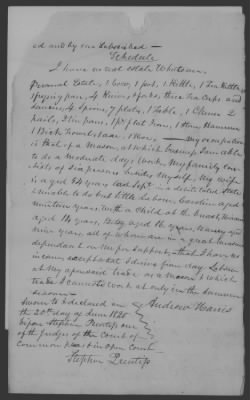 ed and by me subscribed —
Schedule
I have no real estate Whatever.
Personal Estate, 1 Cow, 1 pot, 1 Kettle, 1 Tea Kettle
1 frying pan, 4 Knives & forks, three Tea Cups and
saucers, 4 Spoons, 7 plates, 1 Table, 1 Chair 2
pails, 2 tin pans, 1 Flat Iron, 1 Hammer
1 Brick Trowel, 1 axe, 1 Hoe, — My occupation
is that of a Mason, at which business I am able
to do a moderate day's work, My family Con-
sists of six persons besides Myself, My wife
is aged 54 years last Sept. in a debilitated State
& unable to do but little labour, Caroline aged
nineteen years with a Child at the breast,
aged 14 years, Betsy aged 16 years, Nancy aged
nine years, all of whom are in a great measure
dependant on me for support, that I have no
income except what I derive from day Labour
at my aforesaid trade as a Mason & which
trade I cannot work at only in the summer
season —
Sworn to & declared on
the 20th day of June 1820
before Stephen Prentiss one
of the Judges of the Court of
Common pleas in open Court
Andrew Harris
Stephen Prentiss